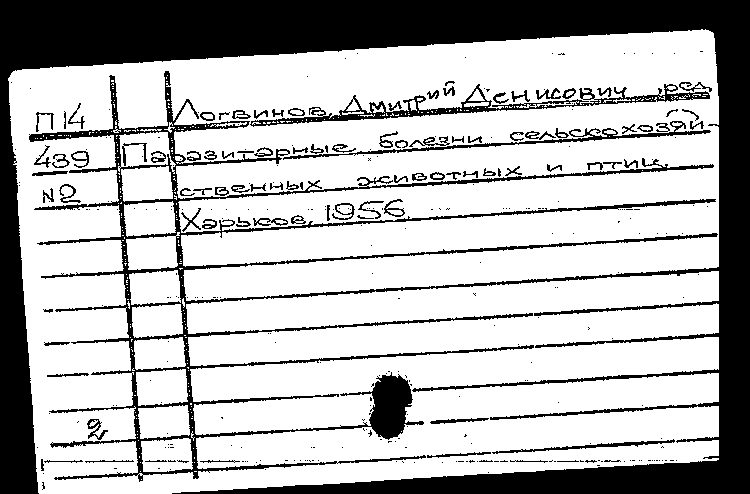 П14 Логвинов, Дмитрий Денисович, ред.
439 Паразитарные болезни сельскохозяй-
№2 ственных животных и птиц.
Харьков, 1956
2